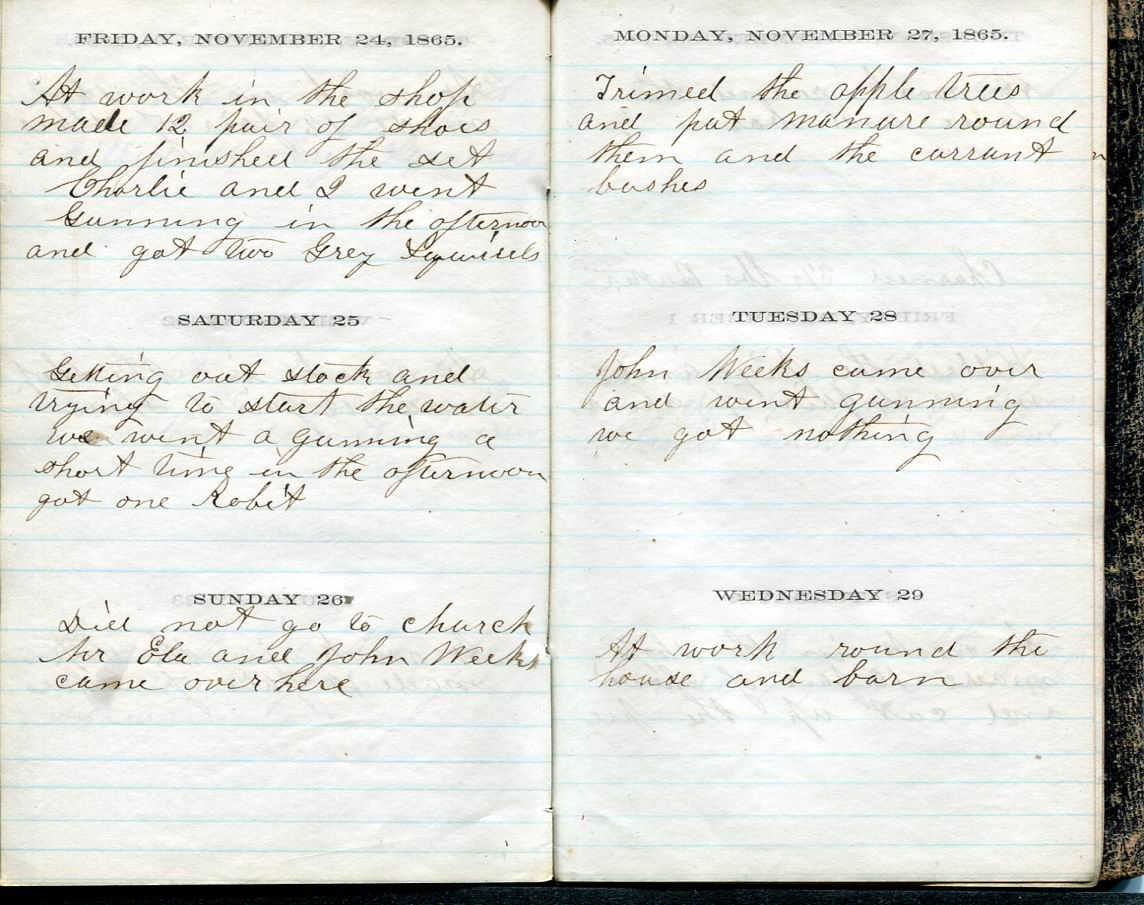 FRIDAY, NOVEMBER 24, 1865.
At work in the shop
made 12 pair of shoes
and finished the set
Charlie and I went
Gunning in the afternoon
and got two Grey Squirels
SATURDAY 25
Getting out stock and
trying to start the water
we went a gunning a
short time in the afternoon
got one Robit
SUNDAY 26
Did not go to church
Mr Ela and John Weeks
came over here
MONDAY, NOVEMBER 27, 1865.
Trimed the apple trees
and put manure round
them and the currant
bushes
TUESDAY 28
John Weeks came over
and went gunning
we got nothing
WEDNESDAY 29
At work round the
house and barn